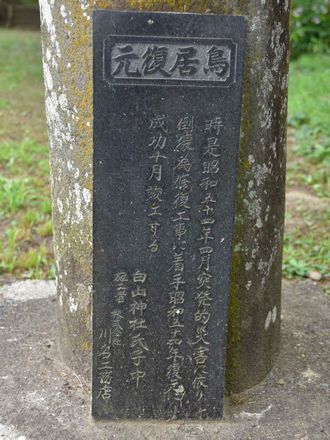 鳥居復元
時是昭和五十四年四月突発的災害に依り
倒後為修復工事に着手昭和五十六年復元
成功十月竣工する
白山神社氏子中
施工者 株式会社
川名工務店